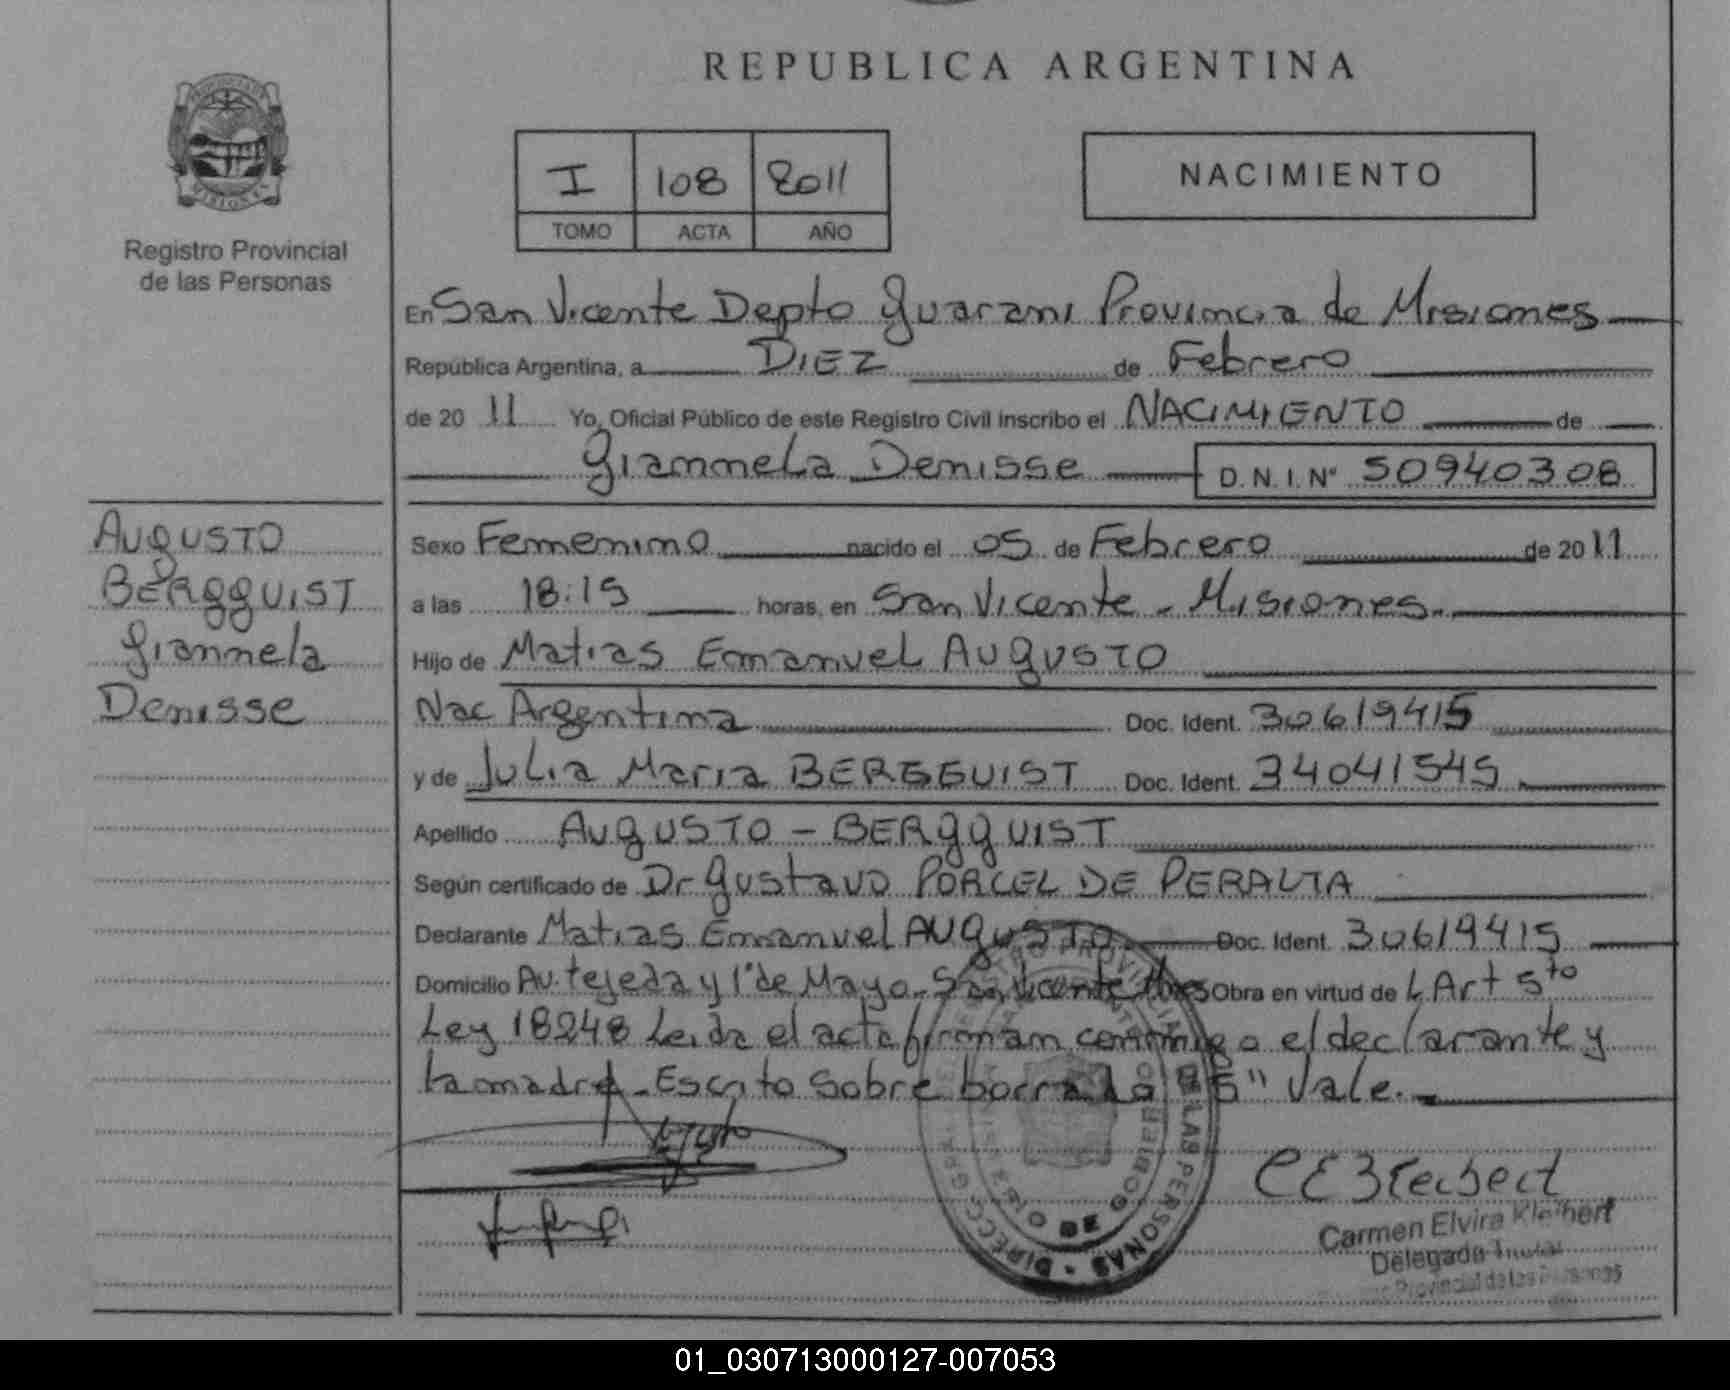 REPUBLICA ARGENTINA
PROVINCIA DE MISIONES
Registro Provincial
de las Personas
I 108 2011
TOMO ACTA AÑO
NACIMIENTO
En San Vicente Depto Guarani Provincia de Misiones
República Argentina, a DIEZ de Febrero
de 20 11 Yo, Oficial Público de este Registro Civil inscribo el NACIMIENTO de
Giannela Denisse D.N.I.Nº 50940308
AUGUSTO
BERGGUIST
Giannela
Denisse
Sexo Femenino nacido el 05 de Febrero de 20 11
a las 18:15 horas, en San Vicente - Misiones.
Hijo de Matias Emanuel AUGUSTO
Nac Argentina Doc. Ident. 30619415
y de Julia Maria BERGGUIST Doc. Ident. 34041545
Apellido AUGUSTO - BERGGUIST
Según certificado de Dr Gustavo PORCEL DE PERALTA
Declarante Matias Emanuel AUGUSTO Doc. Ident. 30619415
Domicilio Av. tejeda y 1º de Mayo - San Vicente Mnes Obra en virtud de L Art 5to
Ley 18248 Leida el acta firman conmigo el declarante y
la madre - Escrito sobre borrado "5" Vale.
Carmen Elvira Kleibert
Delegada Titular
Provincial de las Personas
01_030713000127-007053